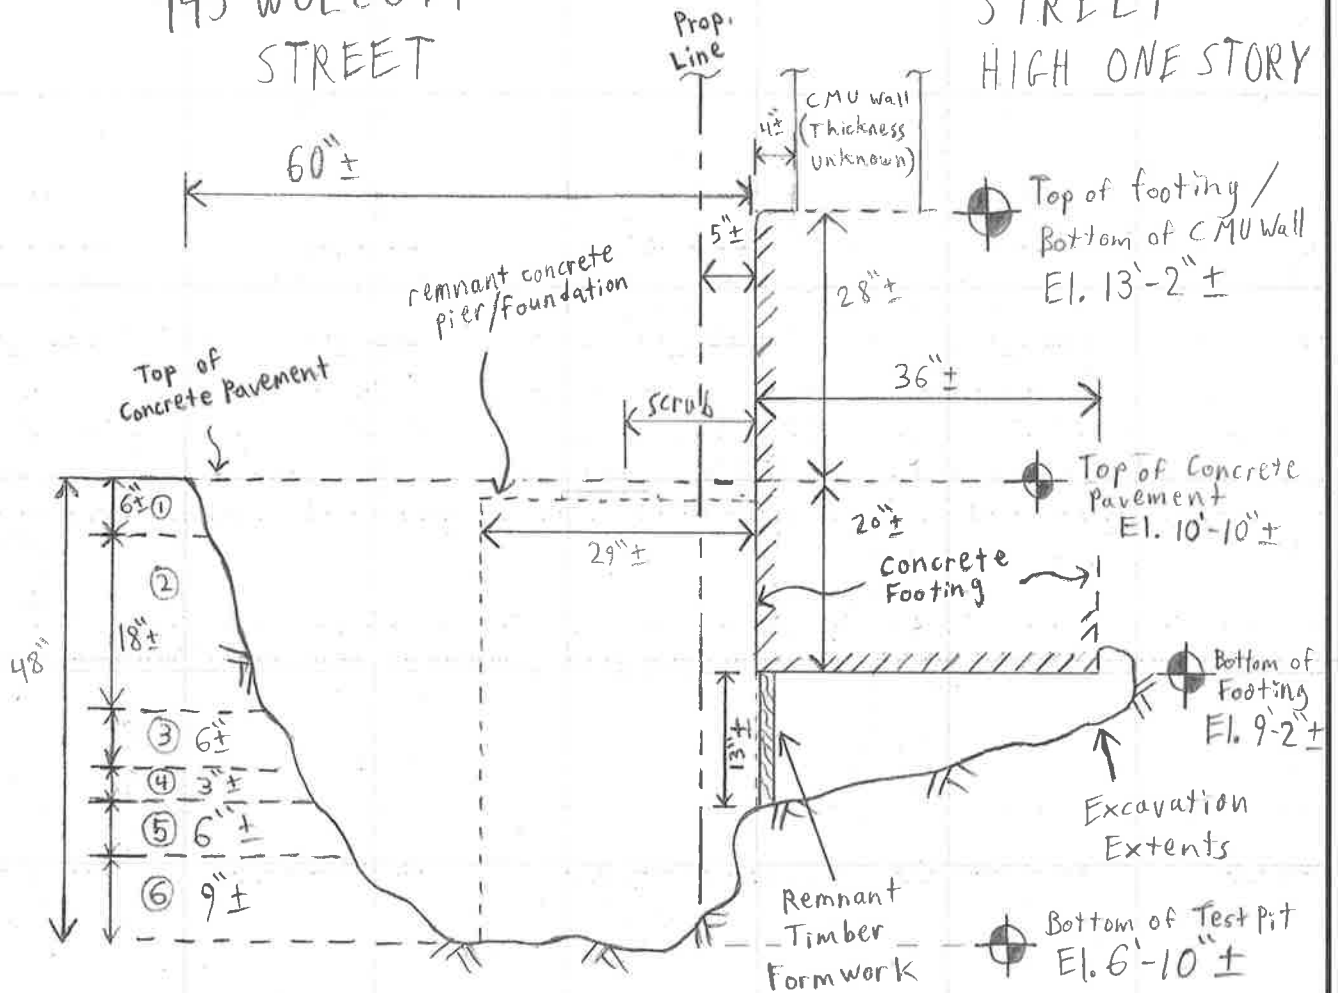 STREET
Prop.
Line
STREET
HIGH ONE STORY
CMU Wall
(Thickness
unknown)
4"±
60"±
5"±
Top of footing /
Bottom of CMU Wall
El. 13'-2"±
remnant concrete
pier/foundation
28"±
Top of
Concrete Pavement
36"±
scrulb
Top of Concrete
Pavement
El. 10'-10"±
6"± ①
20"±
29"±
Concrete
Footing
②
18"±
48"
Bottom of
Footing
El. 9'-2"±
③ 6"±
13"±
④ 3"±
⑤ 6"±
Excavation
Extents
⑥ 9"±
Remnant
Timber
Formwork
Bottom of Test pit
El. 6'-10"±